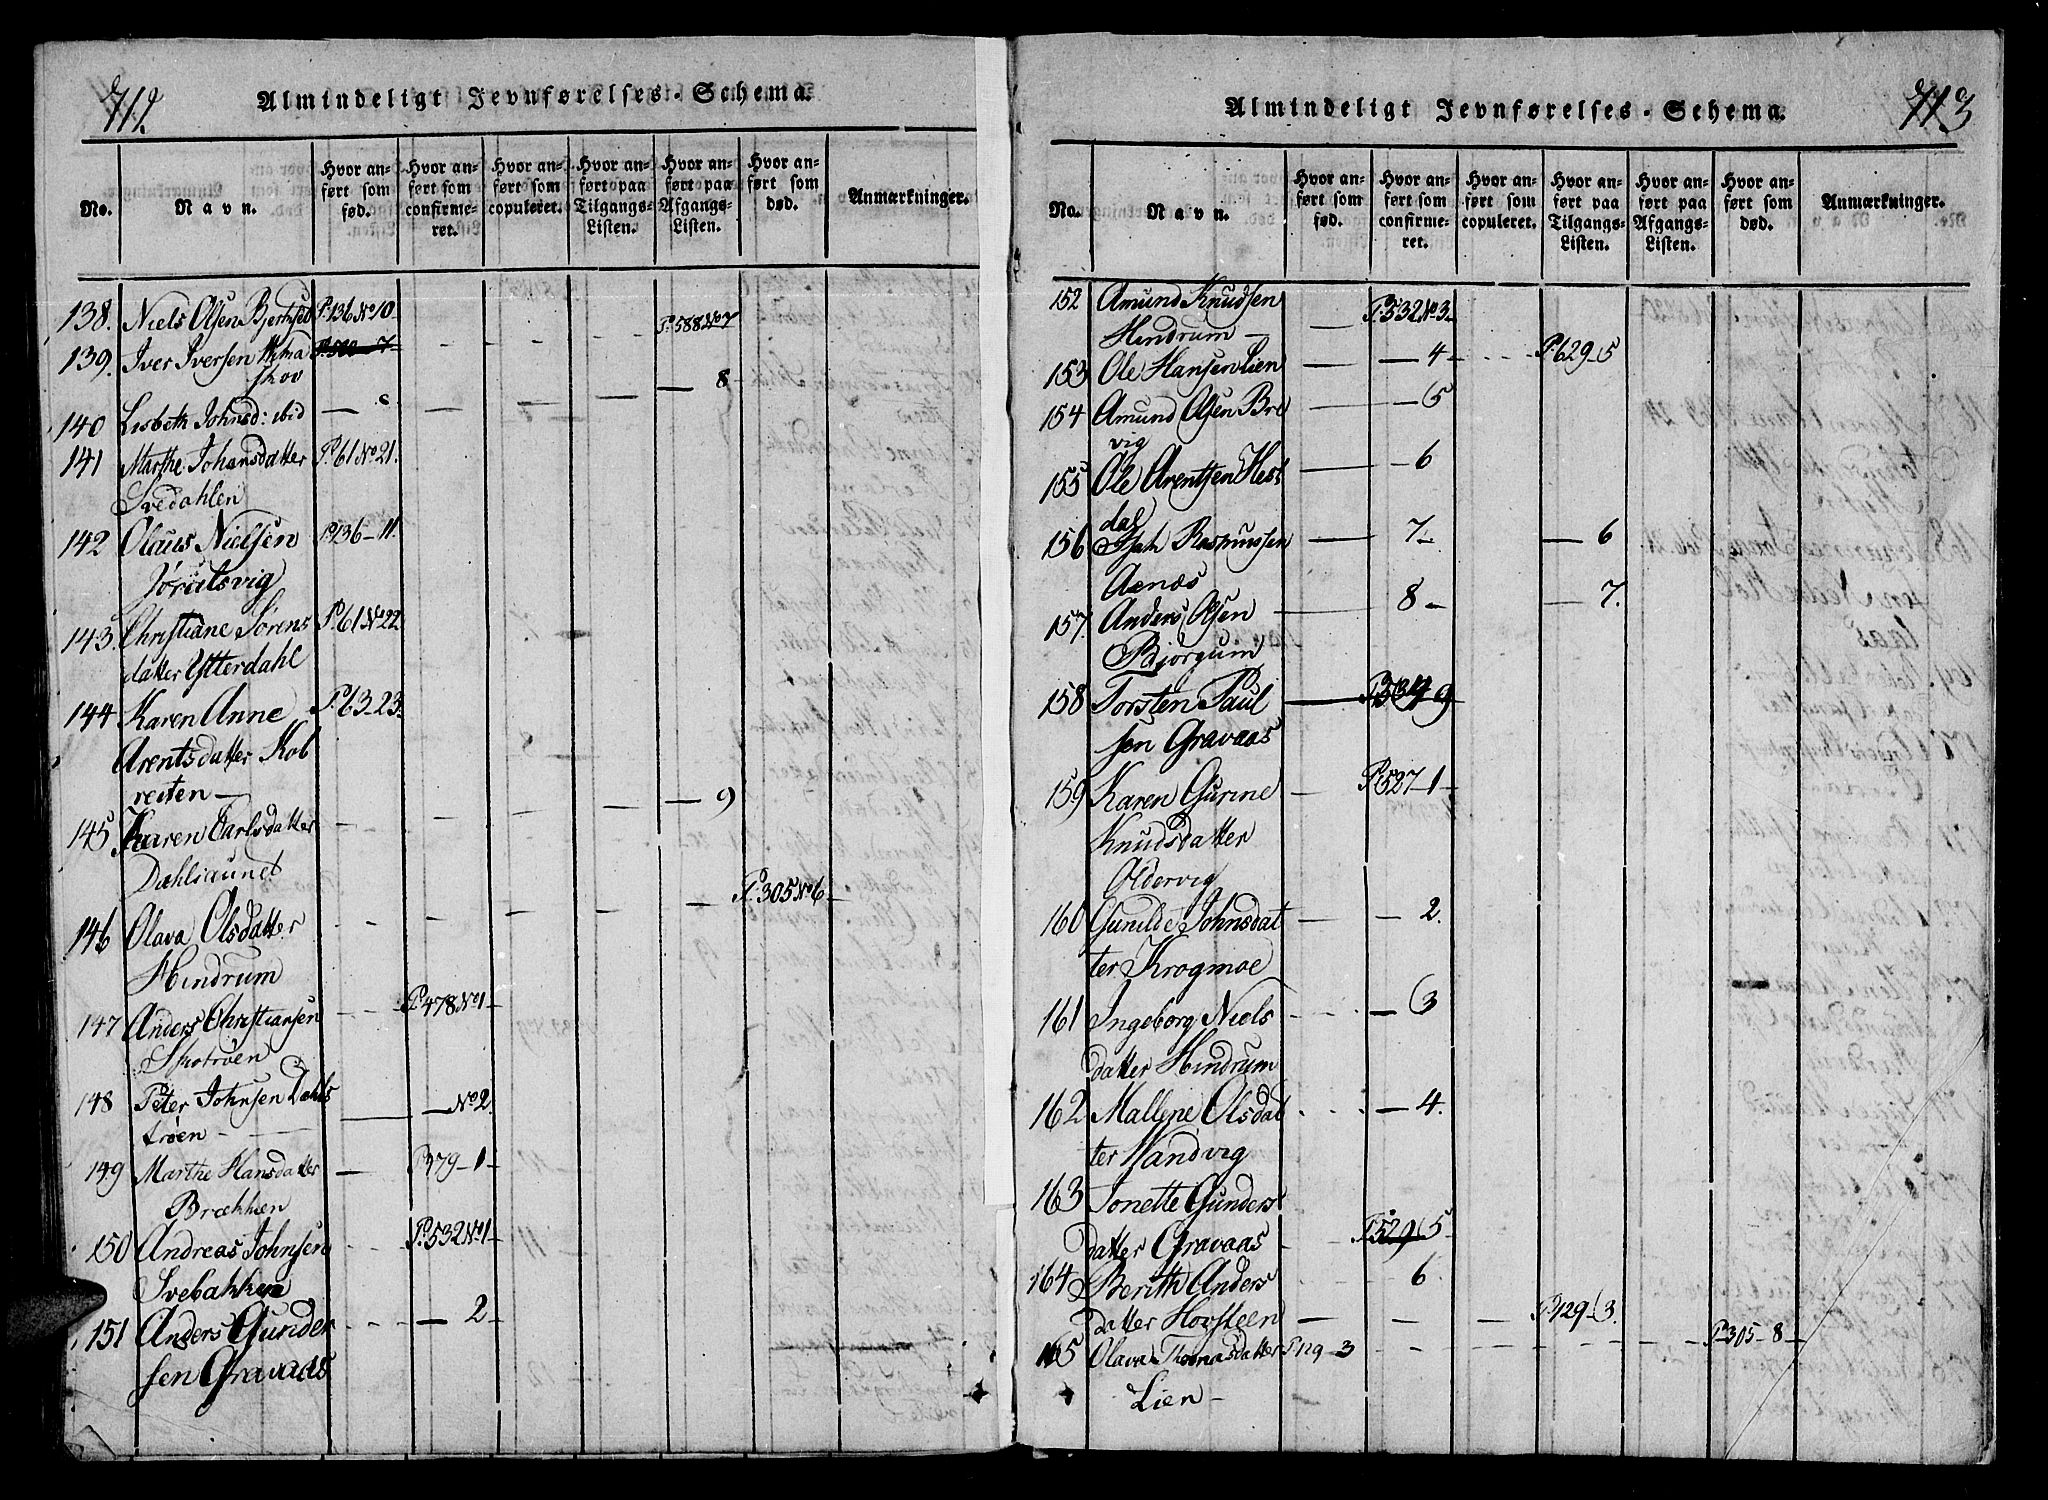 Almindeligt Jevnførelses-Schema.
No.
Navn.
Hvor anført som fød.
Hvor anført som confirmeret.
Hvor anført som copuleret.
Hvor anført paa Tilgangs-Listen.
Hvor anført paa Afgangs-Listen.
Hvor anført som død.
Anmærkninger.
138. Niels Olsen P. 136 No 10. P. 588 No 7
139. Iver Iversen 7 — 8
skov
140 Lisbeth Johnsd: ibid — 8
141 Marthe Johansdatter P. 61 No 21.
Svedahlen
142 Olaus Nielsen P. 136 — 11.
143. Christiane Sørens P. 61 No 22
datter Ytterdahl
144 Karen Anne P. 63 — 23.
Arentsdatter Kob
reiten —
145 Karen Carlsdatter — — — — — 9
Dahlsaunet
146 Olava Olsdatter - - - - - P. 305 No 6
Hindrum
147 Anders Christiansen — P. 478 No 1
148 Peter Johnsen Dahls — — No 2.
trøen —
149 Marthe Hansdatter — P. 379 — 1
Brækken
150 Andreas Johnsen — P. 532 No 1
Svebakken
151 Anders Gunder — — 2
sen Gravaas
Almindeligt Jevnførelses-Schema.
713
No.
Navn.
Hvor anført som fød.
Hvor anført som confirmeret.
Hvor anført som copuleret.
Hvor anført paa Tilgangs-Listen.
Hvor anført paa Afgangs-Listen.
Hvor anført som død.
Anmærkninger.
152 Amund Knudsen — P. 532 No 3
Hindrum —
153 Ole Hansen Lien — — 4 - P. 629 — 5
154 Amund Olsen Bre — — 5
vig
155 Ole Arentsen Hest — — 6
dal
156 Isach Rasmussen — 7 — 6
Aenæs
157 Anders Olsen — 8 — 7.
Bjørgum
158 Torsten Paul — 9
sen Gravaas
159 Karen Gurine — P. 527 — 1
Knudsdatter
Oldervig
160 Gunilde Johnsdat — — 2.
ter Krogmoe
161 Ingeborg Niels — — 3
datter Hindrum
162 Mallene Olsdat — — 4.
ter Handvig
163 Jonette Gunders
datter Gravaas — P. 529 5
164 Berith Anders 6
datter Hovsteen — — — P. 129 — 3.
165 Olava Thomasdatter P 129 — 3 — — — — P. 305 — 8 —
Lien —